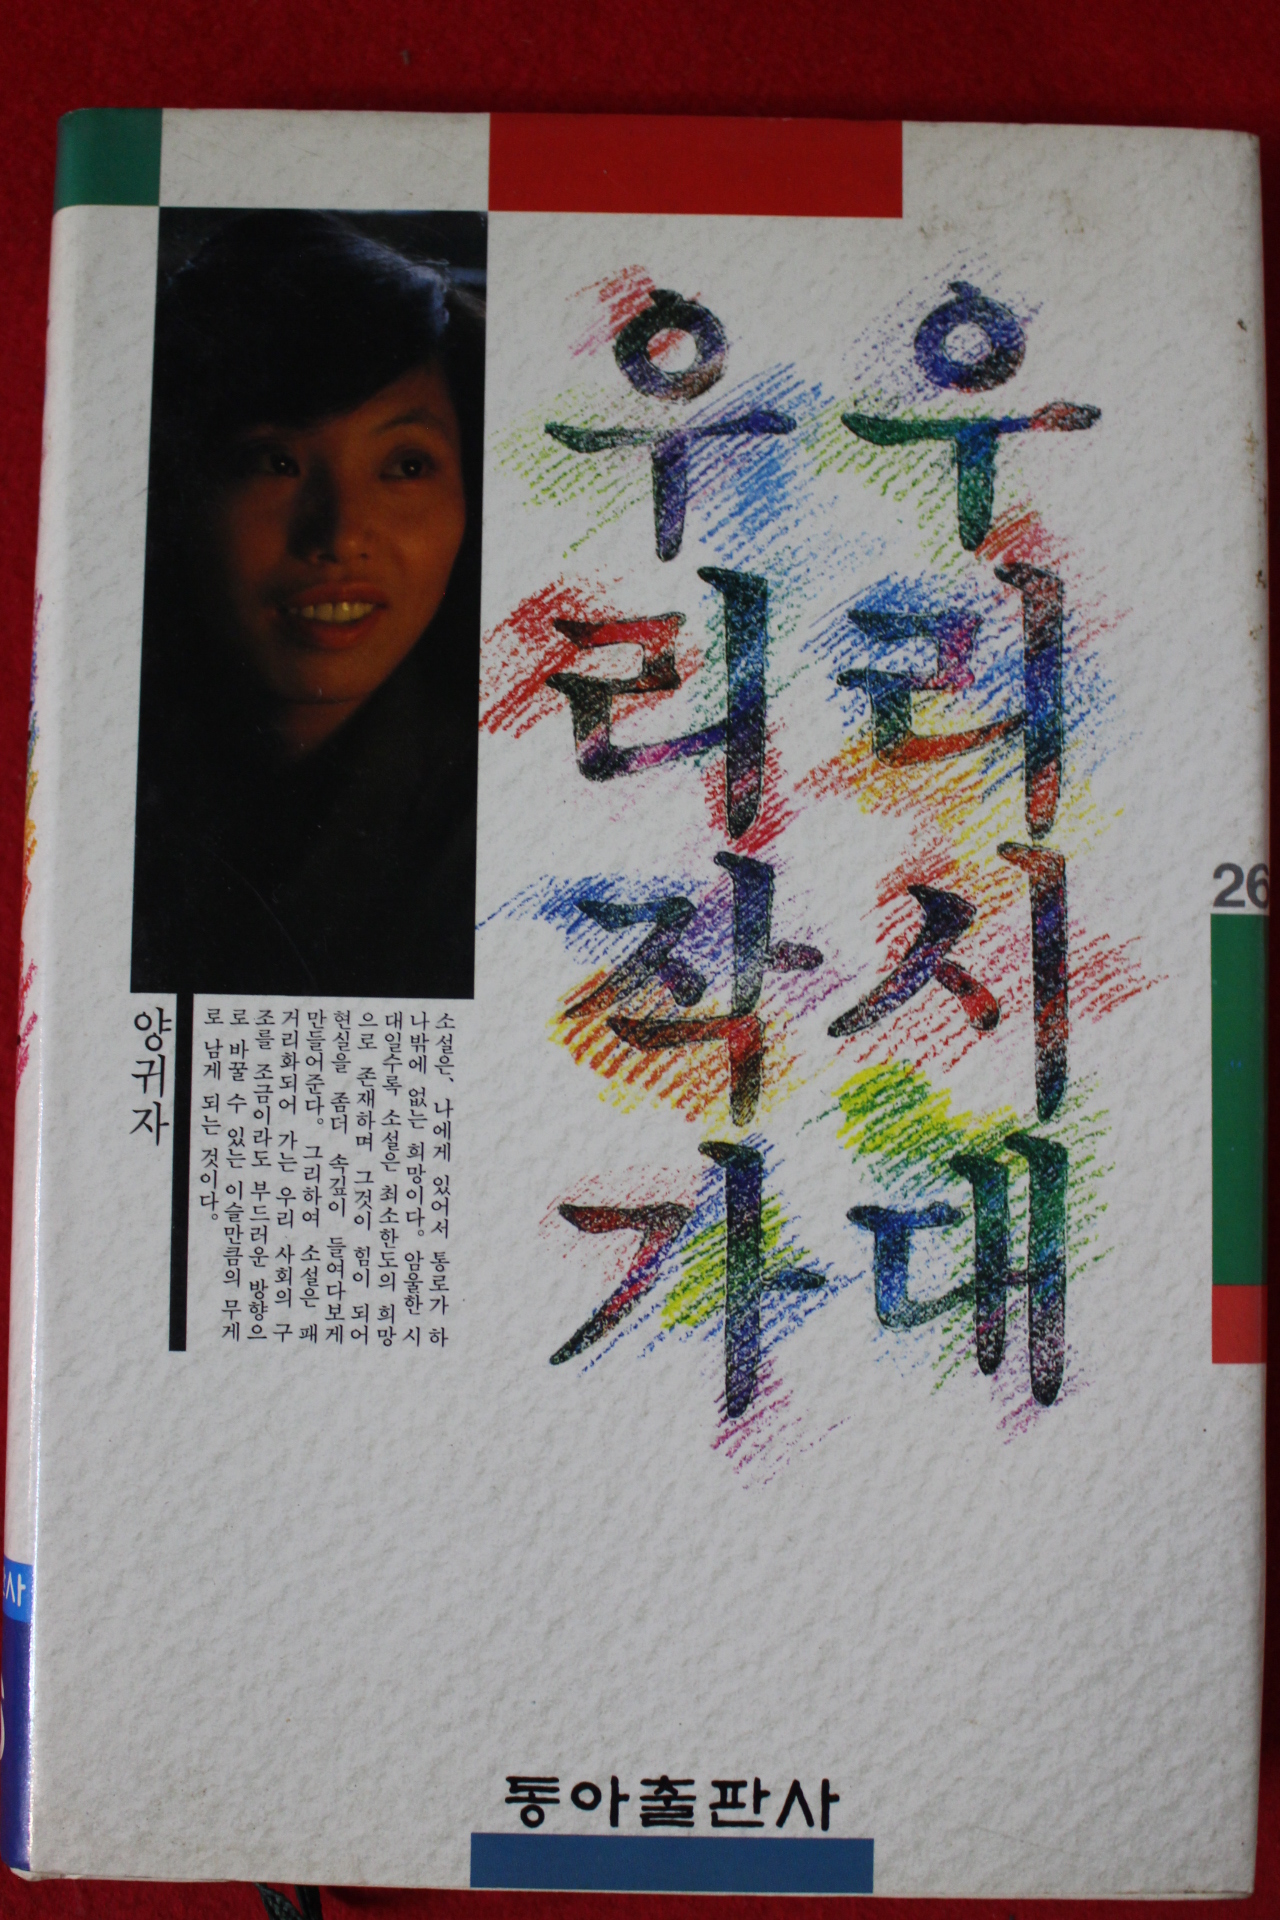 우리시대
우리작가
26
소설은, 나에게 있어서 통로가 하
나밖에 없는 희망이다. 암울한 시
대일수록 소설은 최소한도의 희망
으로 존재하며 그것이 힘이 되어
현실을 좀더 속깊이 들여다보게
만들어준다. 그리하여 소설은 패
거리화되어 가는 우리 사회의 구
조를 조금이라도 부드러운 방향으
로 바꿀 수 있는 이슬만큼의 무게
로 남게 되는 것이다.
양귀자
동아출판사
사